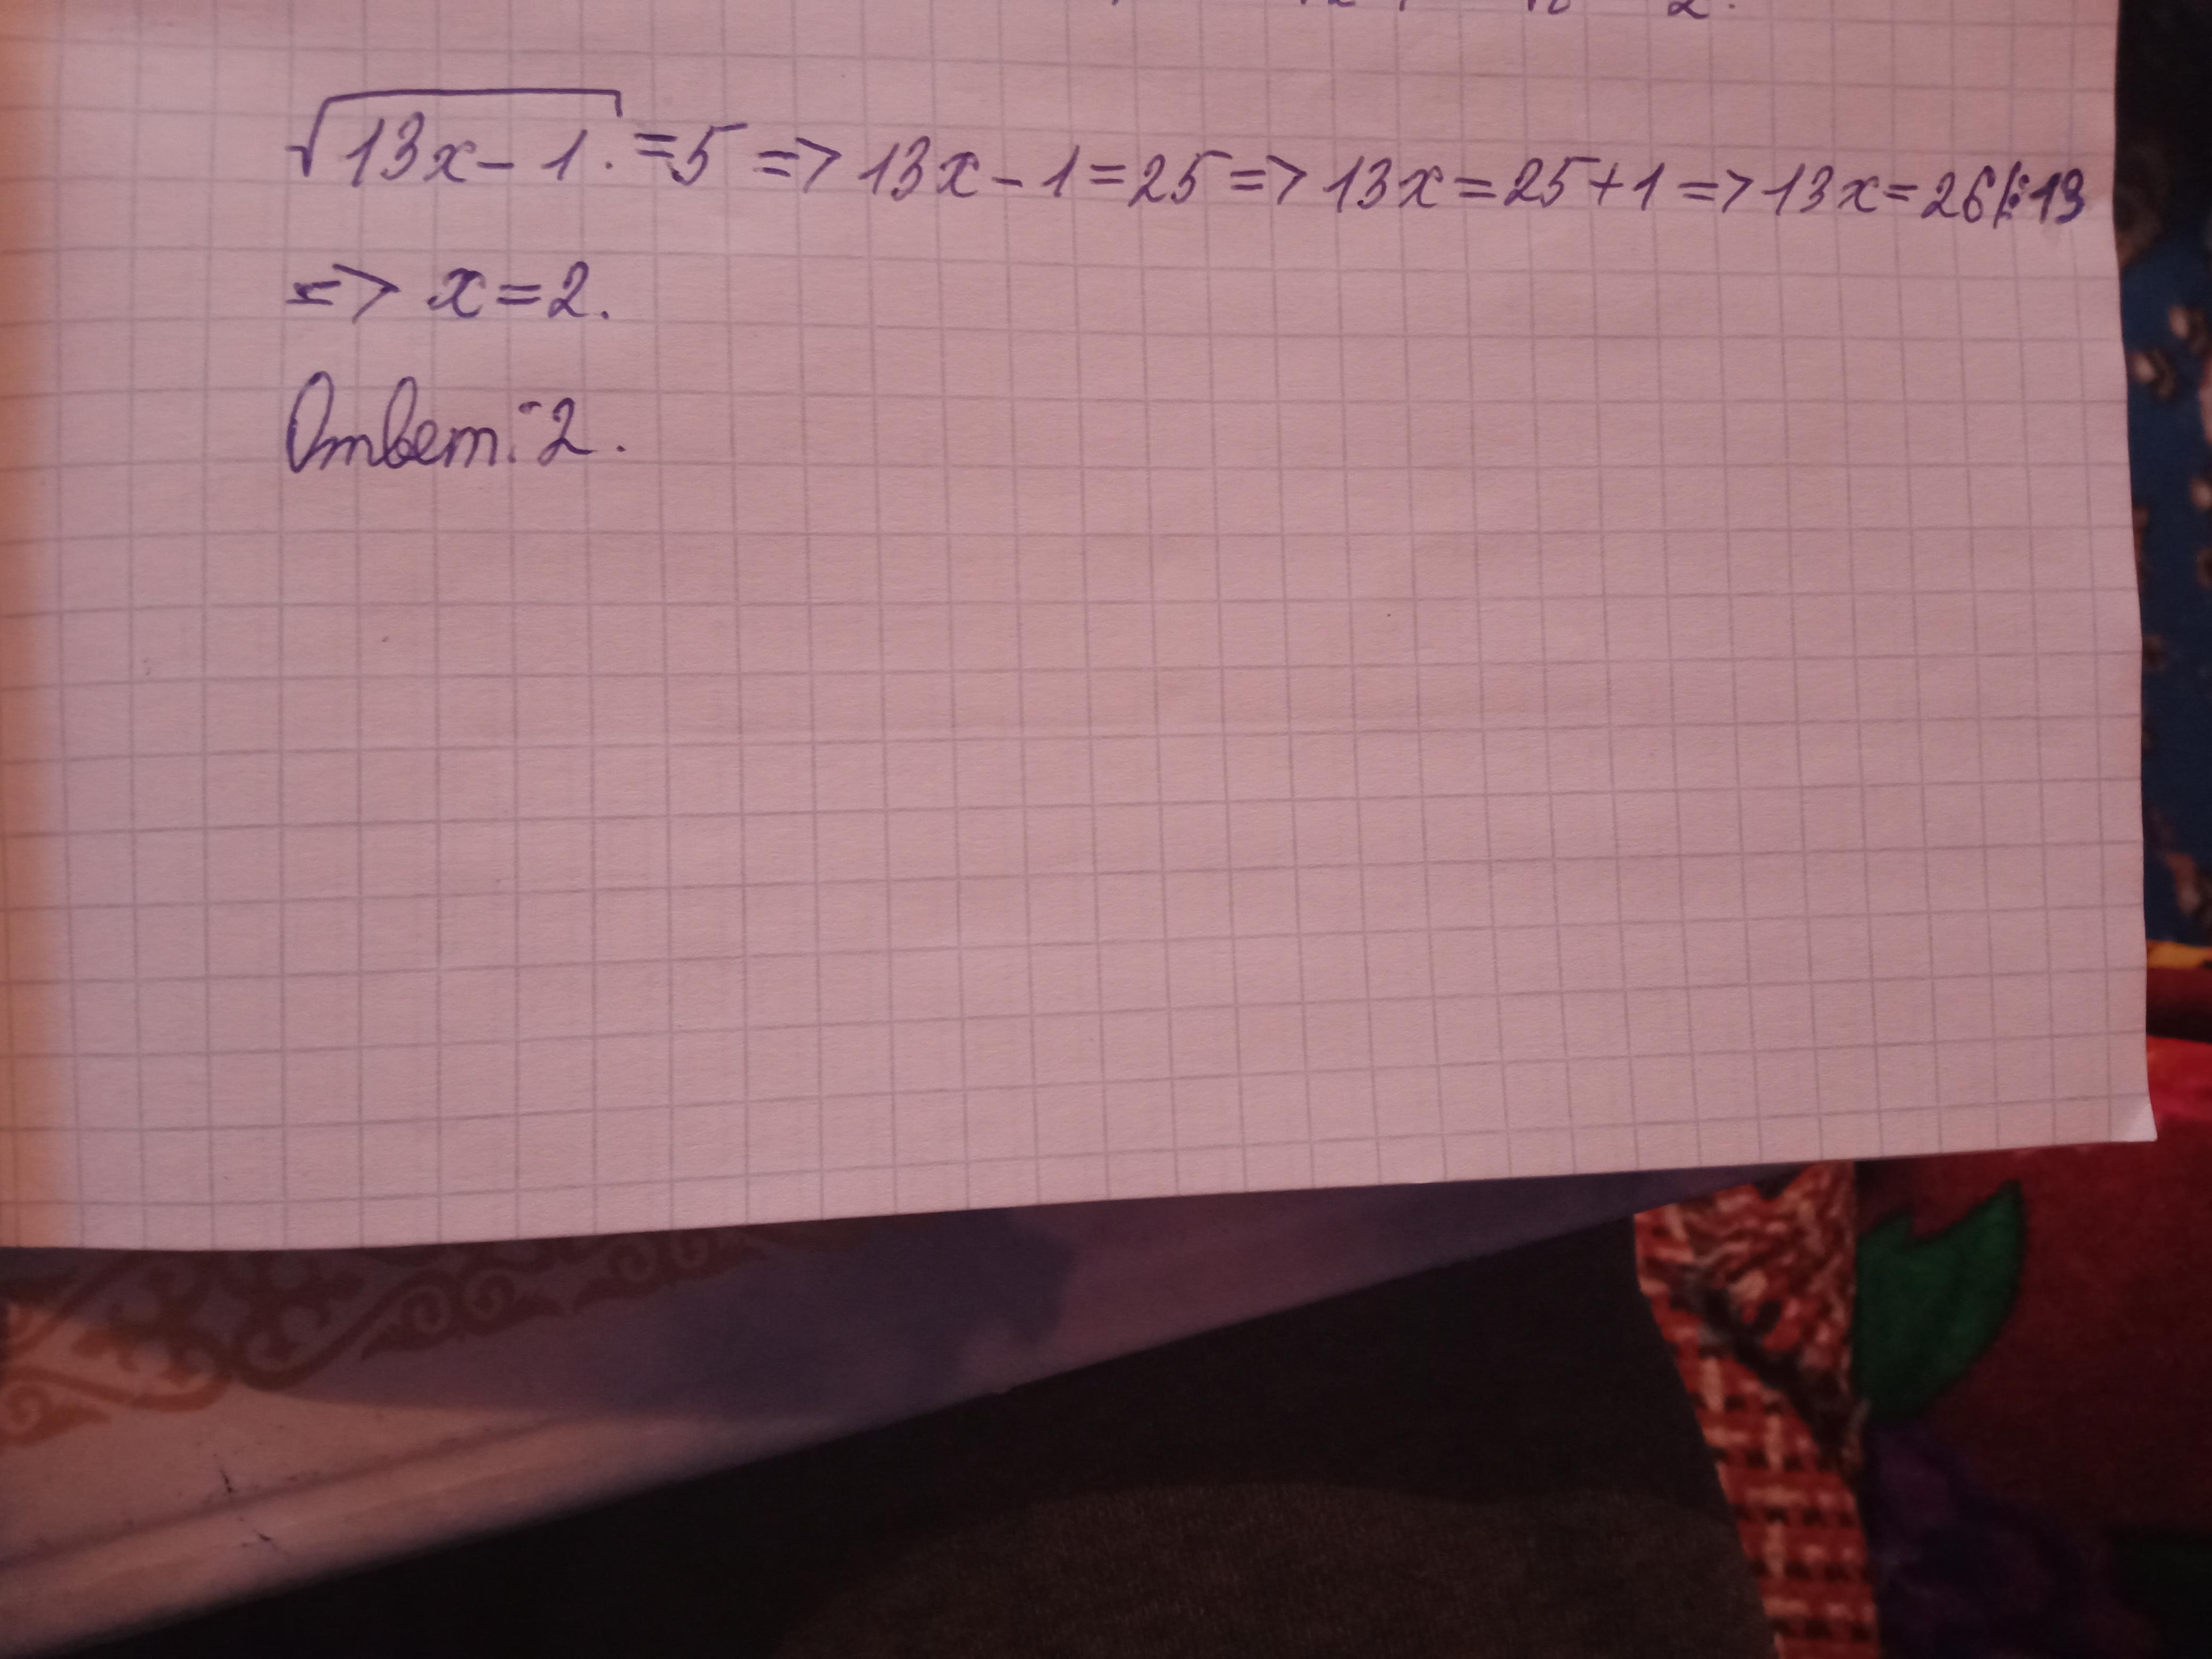 √13x-1. =5 => 13x-1=25 => 13x=25+1 => 13x=26|:13
=> x=2.
Ответ: 2.